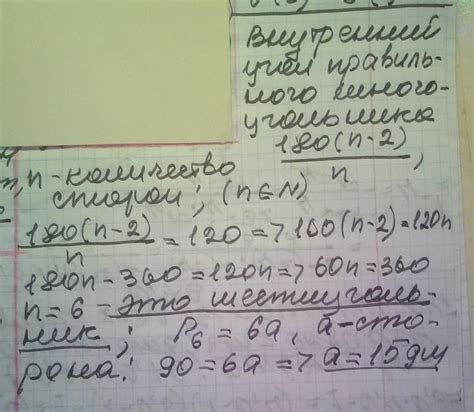 внутренний
угол правиль-
ного много-
угольника
180(n-2)
n ,
n - количество
сторон; (n∈N)
180(n-2)/n = 120 => 180(n-2) = 120n
180n - 360 = 120n => 60n = 360
n = 6 - это шестиуголь-
ник; P₆ = 6a, a - сто-
рона. 90 = 6a => a = 15дм